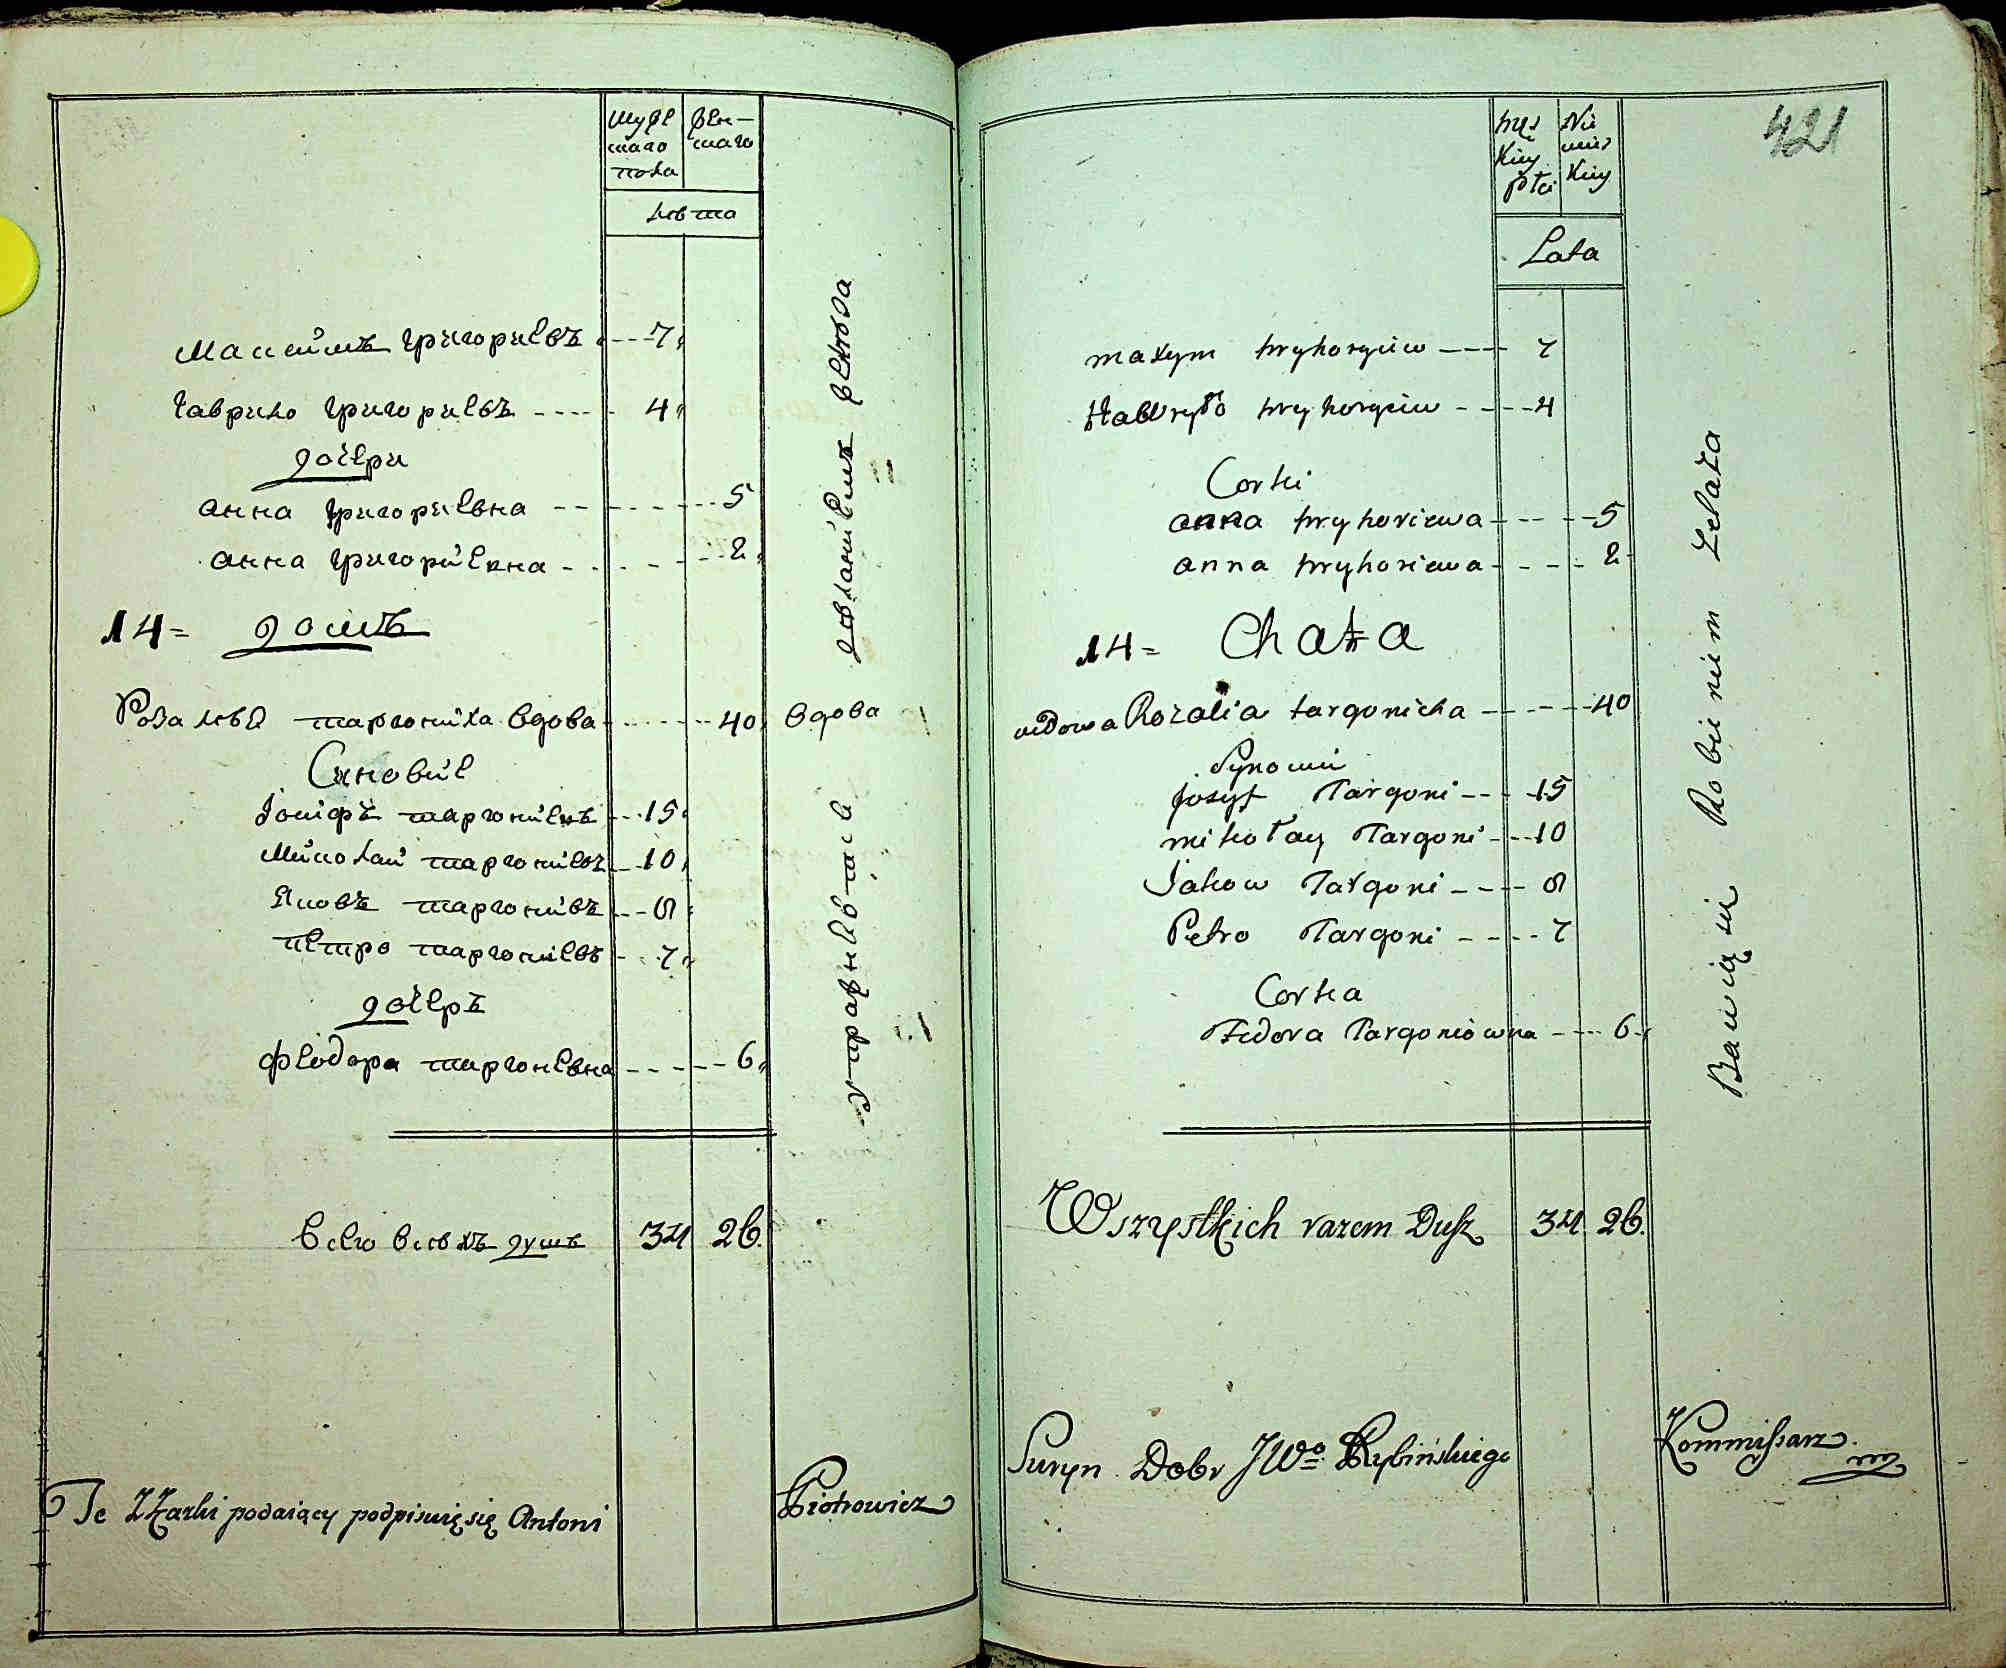 мужескаго пола
женскаго
лѣта
Максимъ григориевъ 7
гаврило григориевъ 4
дочери
анна григориевна 5
анна григориевна 2
14 = домъ
Розалия таргониха вдова 40 вдова
Синовие
Iосифъ таргониевъ 15
Миколай таргониевъ 10
Яковъ таргониевъ 8
петро таргониевъ 7
дочерь
феодора таргонивна 6
упражняется деланиемъ железа
всего всѣхъ душъ 34 26
Te Xżązki podaiący podpisuię się Antoni Piotrowicz
421
męskiey płci
Niewieskiey
Lata
maxym hryhoryiow 7
Hawryło hryhoryiow 4
Corki
anna hryhoriewa 5
anna hryhoriewa 2
14 = Chata
wdowa Rozalia targonicha 40
Synowii
Jozyf Targoni 15
mikołay Targoni 10
Jakow Targoni 8
Petro Targoni 7
Corka
Fedora Targoniowna 6
Bawią się Robieniem Zelaza
Wszystkich razem Dusz 34 26
Suryn Dobr JWo Rybińskiego Kommissarz